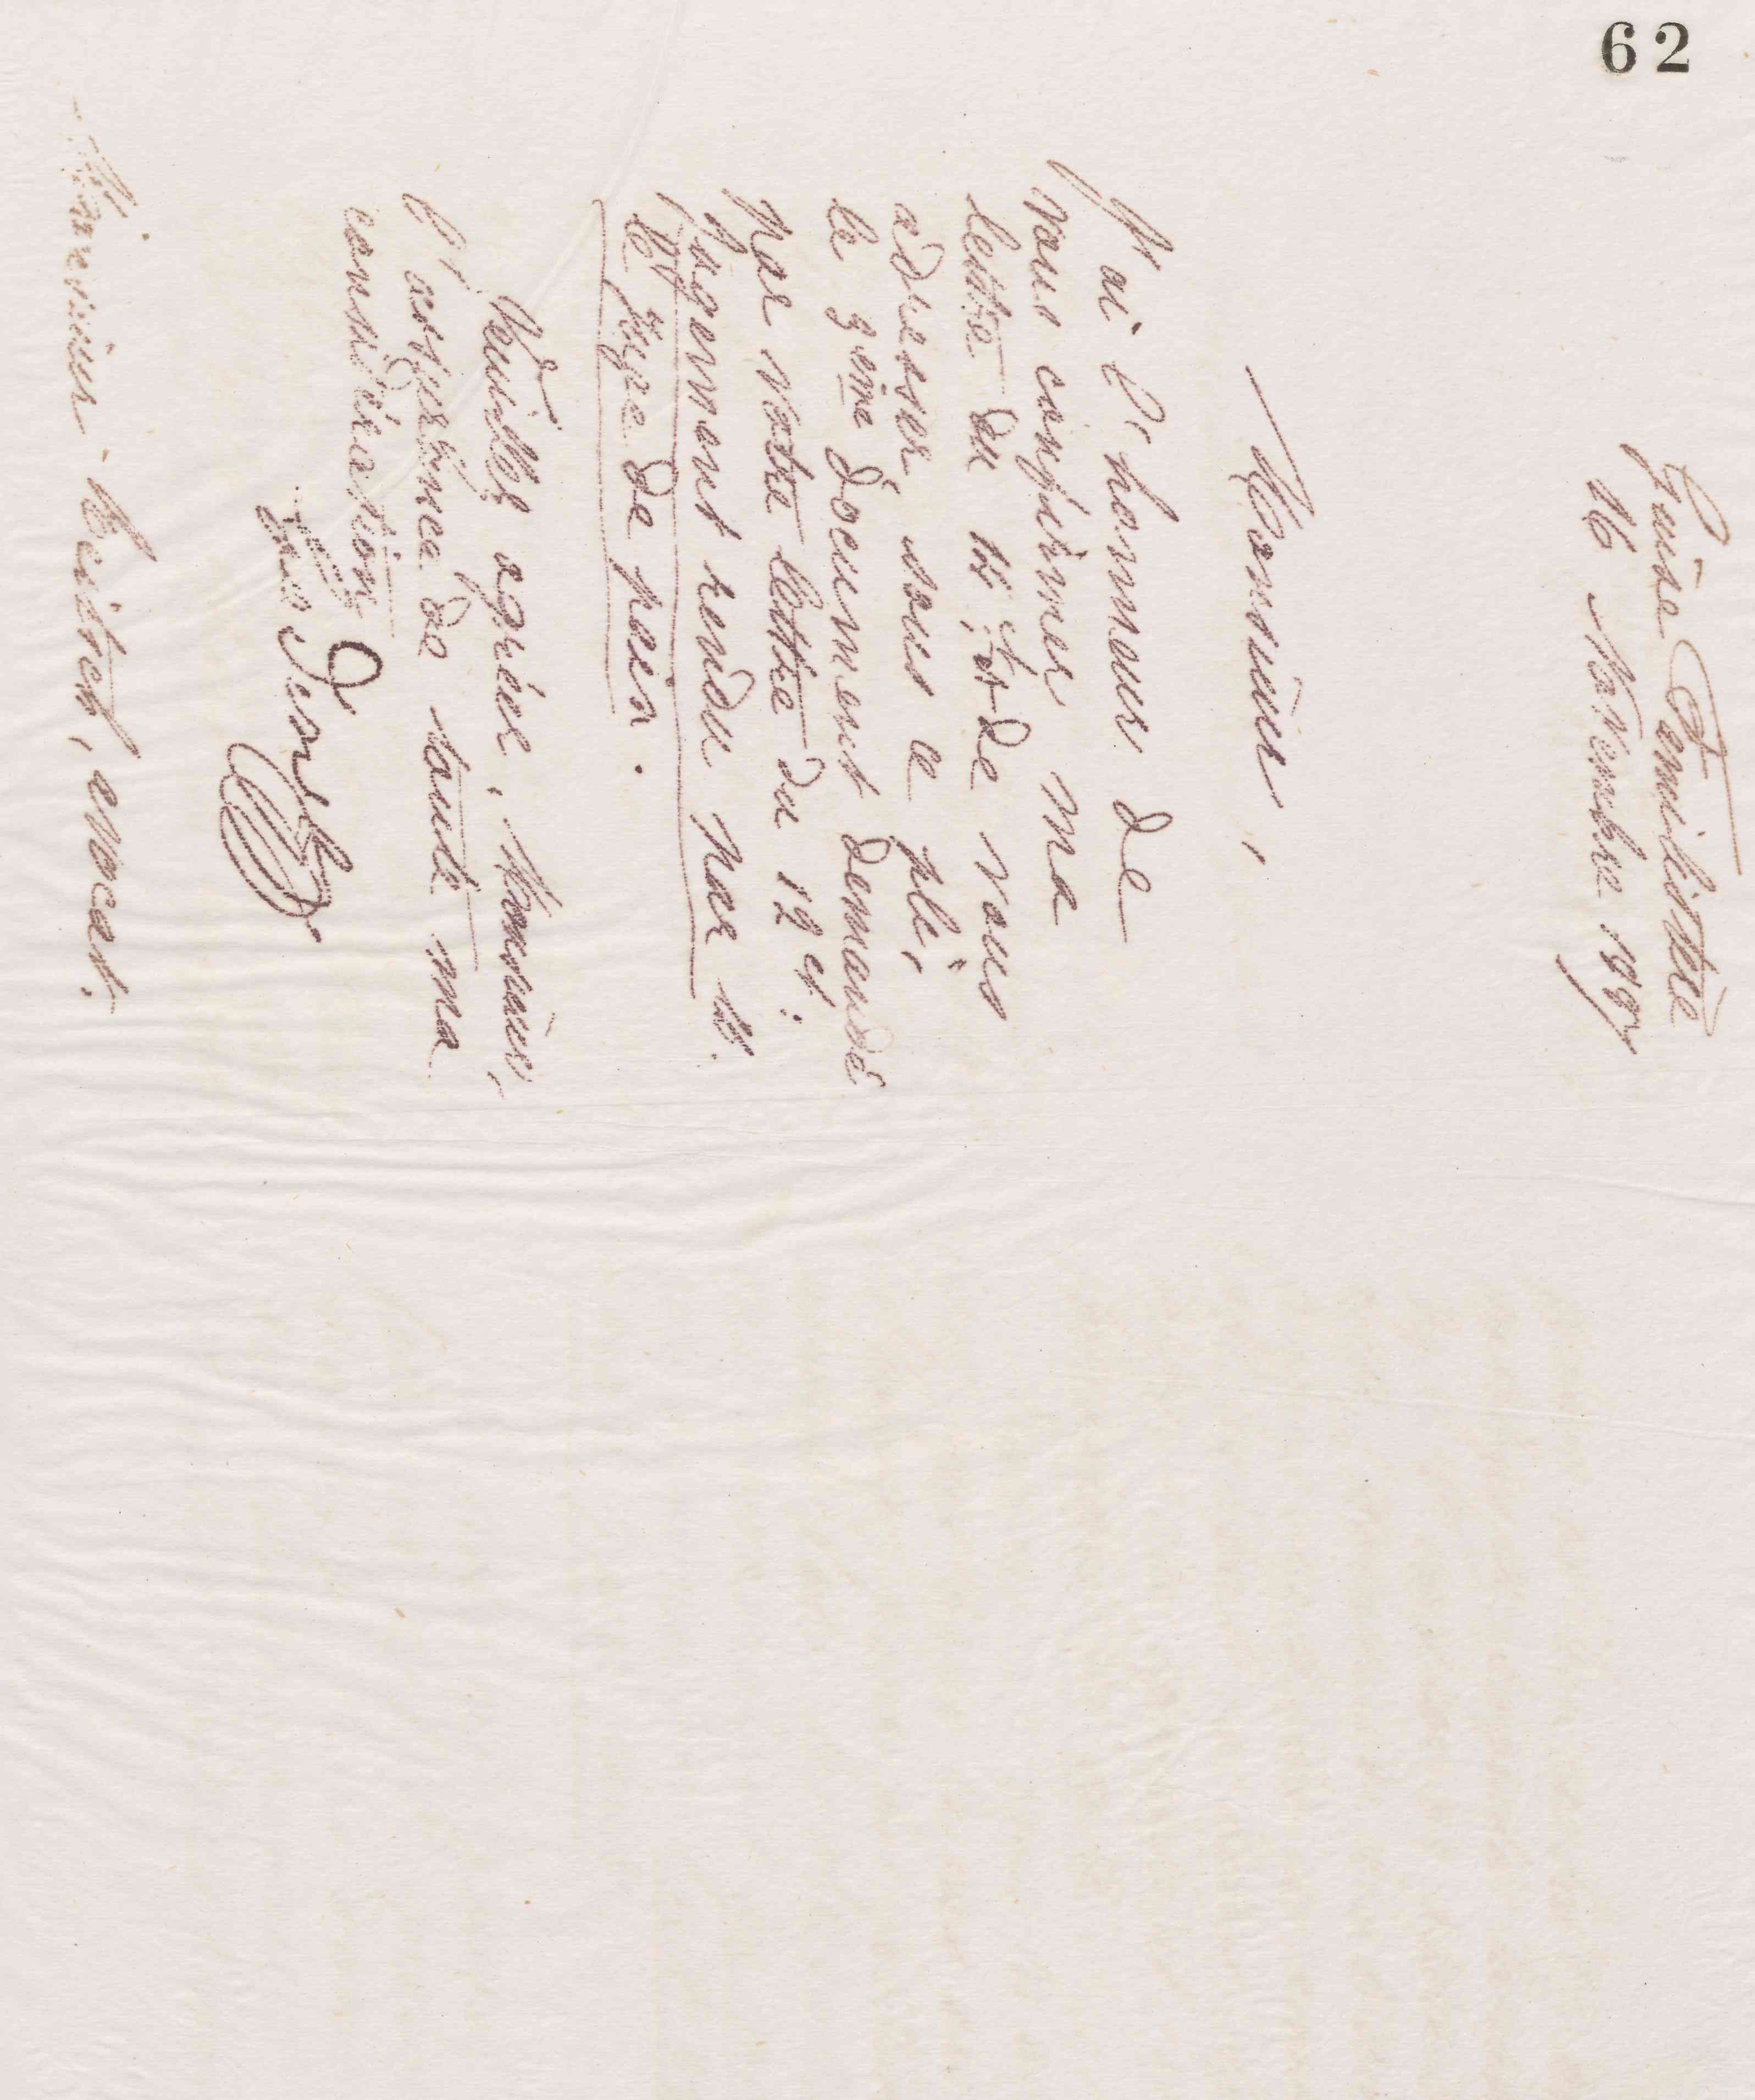 62
Guise Familistère
16 Novembre 1897
Monsieur,
J'ai l'honneur de
vous confirmer ma
lettre du et de vous
adresser, sous ce pli,
le 3eme document demandé
par votre lettre du 12 ct:
Jugement rendu par M.
le Juge de paix.
Veuillez agréer, Monsieur,
l'assurance de toute ma
considération
Monsieur avocat.